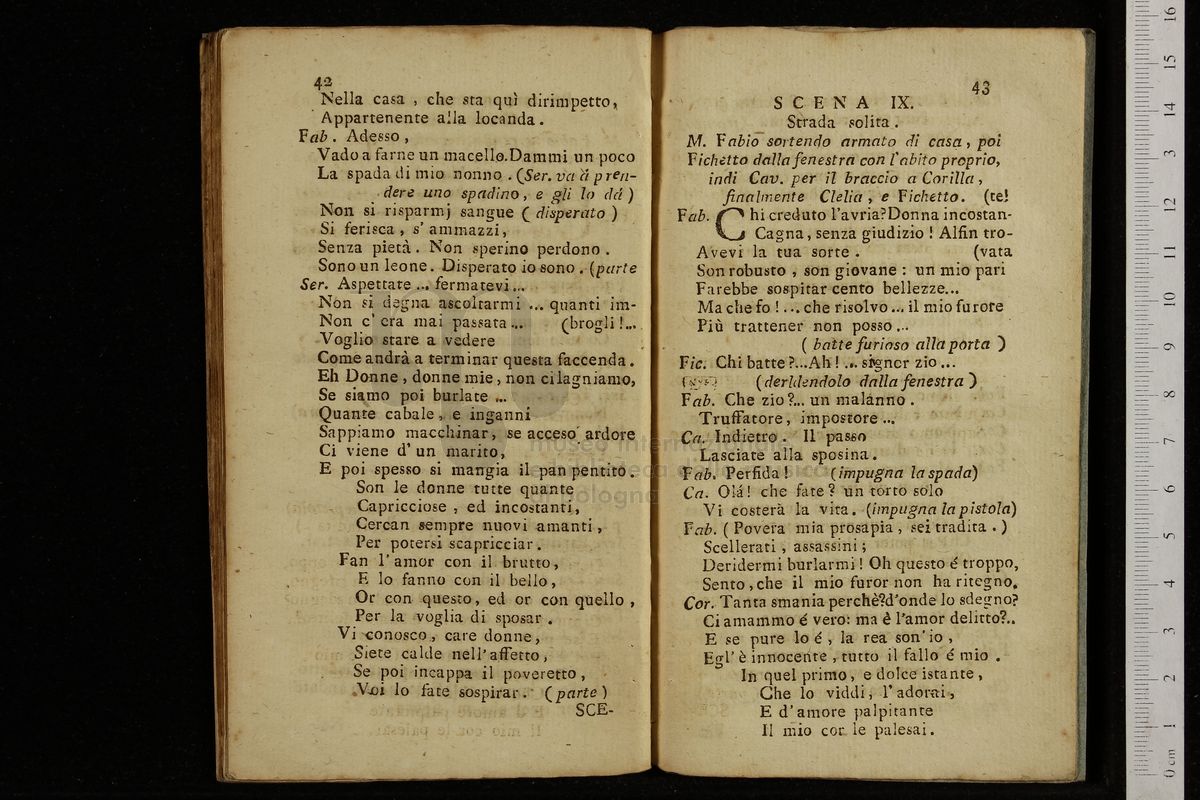 42
Nella casa , che sta quì dirimpetto,
Appartenente alla locanda .
Fab . Adesso ,
Vado a farne un macello.Dammi un poco
La spada di mio nonno . (Ser. va à pren-
dere uno spadino, e gli lo dà )
Non si risparmj sangue ( disperato )
Si ferisca , s' ammazzi,
Senza pietà . Non sperino perdono .
Sono un leone. Disperato io sono . (parte
Ser. Aspettate ... fermatevi...
Non si degna ascoltarmi ... quanti im-
Non c' era mai passata ... (brogli !...
Voglio stare a vedere
Come andrà a terminar questa faccenda .
Eh Donne , donne mie , non ci lagniamo,
Se siamo poi burlate ...
Quante cabale , e inganni
Sappiamo macchinar, se acceso ardore
Ci viene d' un marito,
E poi spesso si mangia il pan pentito.
Son le donne tutte quante
Capricciose , ed incostanti,
Cercan sempre nuovi amanti ,
Per potersi scapricciar .
Fan l' amor con il brutto,
E lo fanno con il bello,
Or con questo, ed or con quello ,
Per la voglia di sposar .
Vi conosco, care donne,
Siete calde nell' affetto,
Se poi incappa il poveretto,
Voi lo fate sospirar . (parte )
SCE-
43
SCENA IX.
Strada solita .
M. Fabio sortendo armato di casa, poi
Fichetto dalla fenestra con l'abito proprio,
indi Cav. per il braccio a Corilla ,
finalmente Clelia , e Fichetto. (te!
Fab. Chi creduto l'avria?Donna incostan-
Cagna, senza giudizio ! Alfin tro-
Avevi la tua sorte . (vata
Son robusto , son giovane : un mio pari
Farebbe sospitar cento bellezze...
Ma che fo ! ... che risolvo ... il mio furore
Più trattener non posso ...
( batte furioso alla porta )
Fic. Chi batte ?...Ah ! ... signer zio ...
(deridendolo dalla fenestra )
Fab. Che zio ?... un malanno .
Truffatore, impostore ...
Ca. Indietro . Il passo
Lasciate alla sposina .
Fab. Perfida ! (impugna la spada)
Ca. Olá! che fate ? un torto solo
Vi costerà la vita. (impugna la pistola)
Fab. ( Povera mia prosapia , sei tradita . )
Scellerati , assassini ;
Deridermi burlarmi ! Oh questo é troppo,
Sento , che il mio furor non ha ritegno.
Cor. Tanta smania perchè?d'onde lo sdegno?
Ci amammo é vero: ma è l'amor delitto?..
E se pure lo é , la rea son' io ,
Egl' è innocente , tutto il fallo é mio .
In quel primo, e dolce istante ,
Che lo viddi, l' adorai,
E d' amore palpitante
Il mio cor le palesai.
museo internazionale
e biblioteca della musica
di bologna
0 cm 1 2 3 4 5 6 7 8 9 10 11 12 13 14 15 16